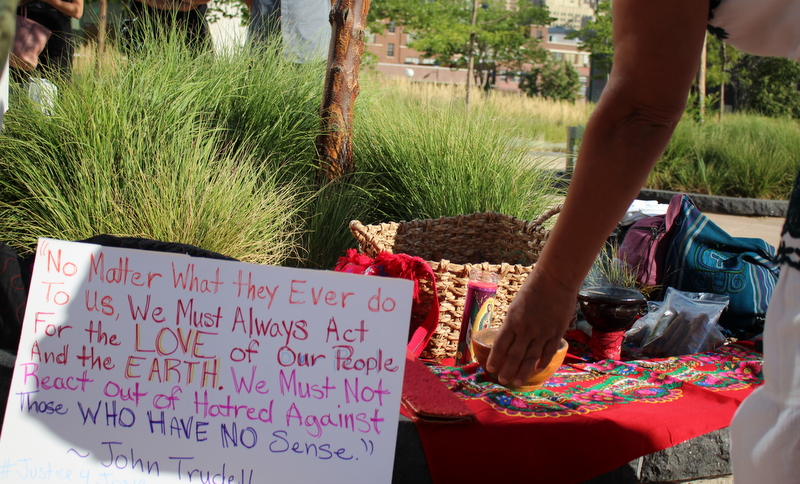 "No Matter What they Ever do
To us, We Must Always Act
For the LOVE of Our People
And the EARTH. We Must Not
React Out of Hatred Against
Those WHO HAVE NO Sense."
~ John Trudell
#Justice4